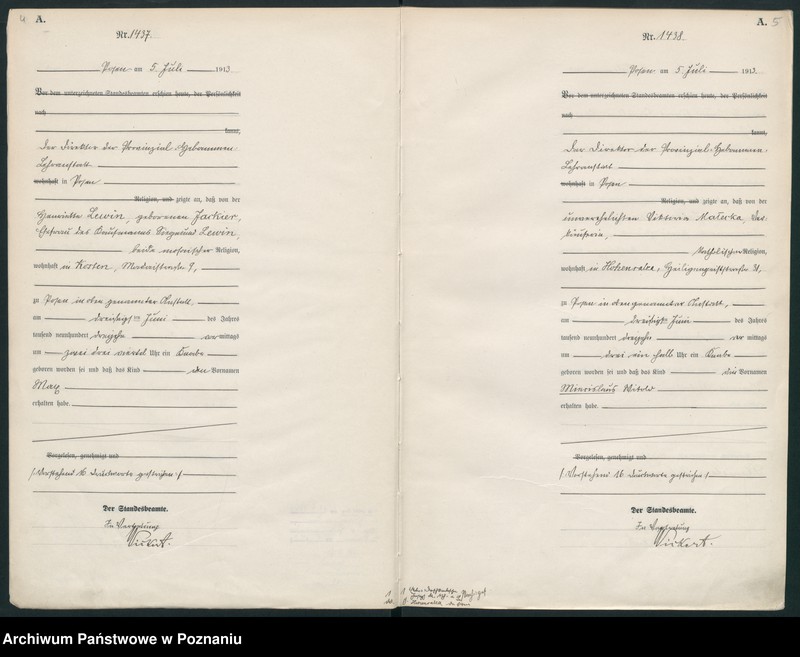 4 A.
Nr. 1437.
Posen am 5. Juli 1913
Vor dem unterzeichneten Standesbeamten erschien heute, der Persönlichkeit
nach
kannt,
Der Direktor der Provinzial-Hebammen-
Lehranstalt
wohnhaft in Posen
Religion, und zeigte an, daß von der
Henriette Lewin, geborenen Jarkier,
Ehefrau des Kaufmanns Siegmund Lewin,
beide mosaischer Religion,
wohnhaft in Kosten,
zu Posen in oben genannter Anstalt,
am dreißigsten Juni des Jahres
tausend neunhundert dreizehn vormittags
um zwei drei viertel Uhr ein Knabe
geboren worden sei und daß das Kind den Vornamen
Max
erhalten habe.
Vorgelesen, genehmigt und
/ Vorstehend 16 Druckworte gestrichen /
Der Standesbeamte.
In Vertretung
A. 5
Nr. 1438
Posen am 5. Juli 1913
Vor dem unterzeichneten Standesbeamten erschien heute, der Persönlichkeit
nach
kannt,
Der Direktor der Provinzial-Hebammen-
Lehranstalt
wohnhaft in Posen
Religion, und zeigte an, daß von der
unverehelichten Viktoria Matecka,
katholischer Religion,
wohnhaft in Hohensalza, Heiligegeiststraße 31,
zu Posen in oben genannter Anstalt,
am dreißigsten Juni des Jahres
tausend neunhundert dreizehn vormittags
um drei ein halb Uhr ein Knabe
geboren worden sei und daß das Kind die Vornamen
Miecislaus Witold
erhalten habe.
Vorgelesen, genehmigt und
/ Vorstehend 16 Druckworte gestrichen /
Der Standesbeamte.
In Vertretung
Archiwum Państwowe w Poznaniu